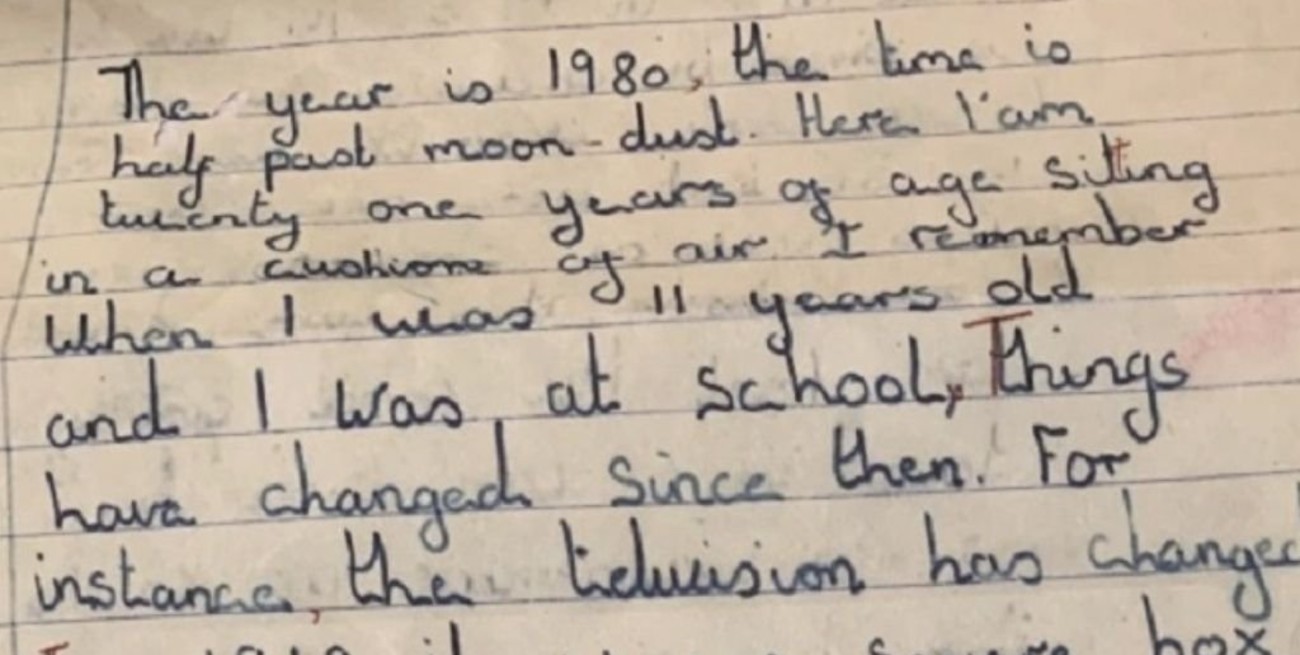 The year is 1980, the time is
half past moon-dust. Here I'am
twenty one years of age sitting
in a cushione of air I remember
When I was 11 years old
and I was at school, Things
have changed since then. For
instance, the television has changed
box